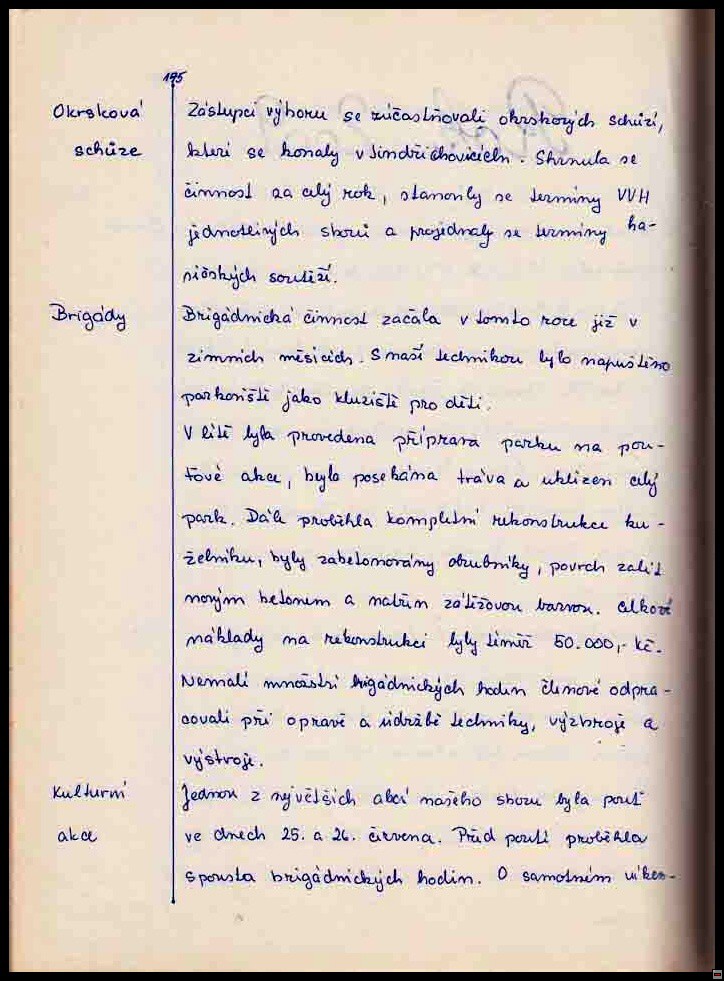 195
Okrsková Zástupci výboru se zúčastňovali okrskových schůzí,
schůze kteří se konaly v Jindřichovicích. Shrnula se
činnost za celý rok, stanovily se termíny VVH
jednotlivých sborů a projednaly se termíny ha-
sičských soutěží.
Brigády Brigádnická činnost začala v tomto roce již v
zimních měsících. S naší technikou bylo napuštěno
parkoviště jako kluziště pro děti.
V létě byla provedena příprava parku na pou-
ťové akce, byla posekána tráva a uklizen celý
park. Dále proběhla kompletní rekonstrukce ku-
želníku, byly zabetonovány obrubníky, povrch zalit
novým betonem a natřen zátěžovou barvou. Celkové
náklady na rekonstrukci byly téměř 50.000,- Kč.
Nemalé množství brigádnických hodin členové odpra-
covali při opravě a údržbě techniky, výzbroje a
výstroje.
Kulturní Jednou z největších akcí našeho sboru byla pouť
akce ve dnech 25. a 26. června. Před poutí proběhla
spousta brigádnických hodin. O samotném víken-